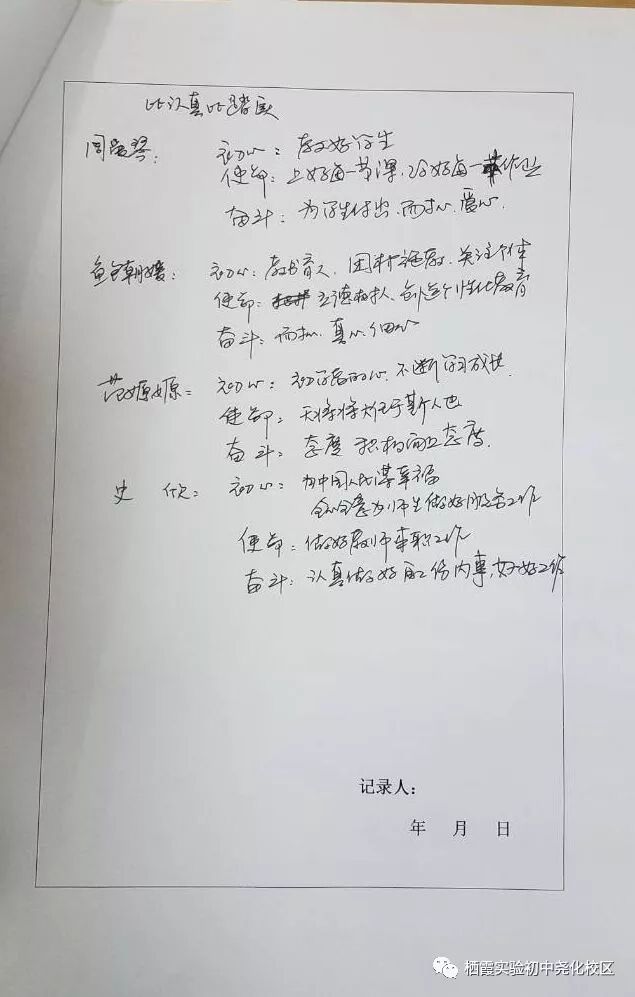 比认真比踏实
周 琴： 初心：教好学生
使命：上好每一节课，改好每一作业
奋斗：为学生付出，耐心、爱心。
鲍朝媛： 初心：教书育人，因材施教，关注个体
使命：立德树人，创造个性化教育
奋斗：耐心、真心、细心
范嫄嫄： 初心：初学者的心，不断学习成长。
使命：天将将大任于斯人也
奋斗：态度 积极向上态度。
史 欣： 初心：为中国人民谋幸福
全心全意为师生做好服务工作
使命：做好教师本职工作
奋斗：认真做好自己份内事，好好工作
记录人：
年 月 日
栖霞实验初中尧化校区